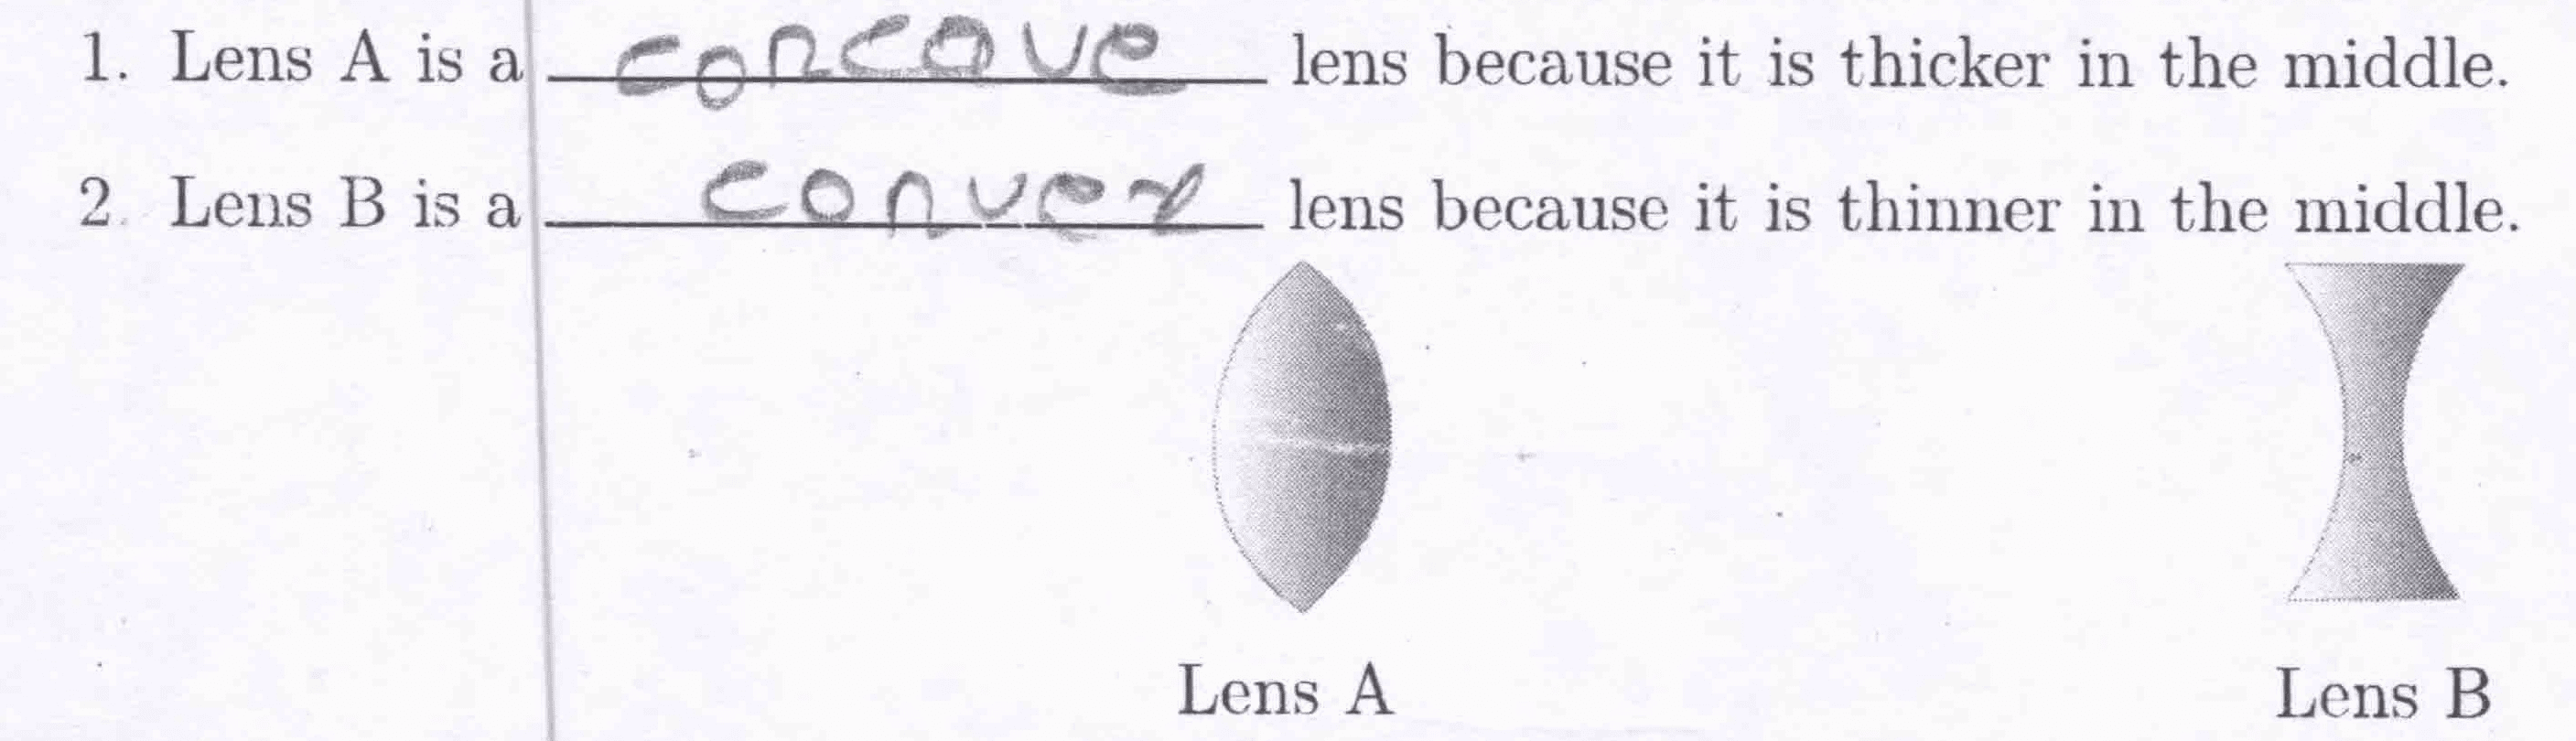 1. Lens A is a concave lens because it is thicker in the middle.
2. Lens B is a convex lens because it is thinner in the middle.
Lens A Lens B